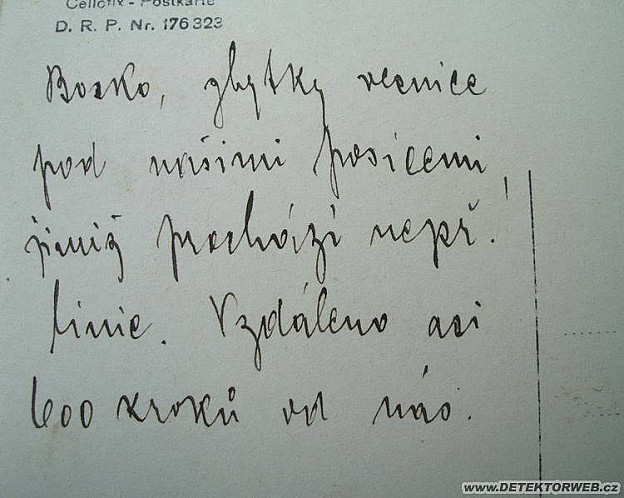 Cellofix - Postkarte
D. R. P. Nr. 176 323
Bosko, zbytky vesnice
pod našimi posicemi,
jimiž prochází nepř.
linie. Vzdáleno asi
600 kroků od nás.
www.DETEKTORWEB.cz